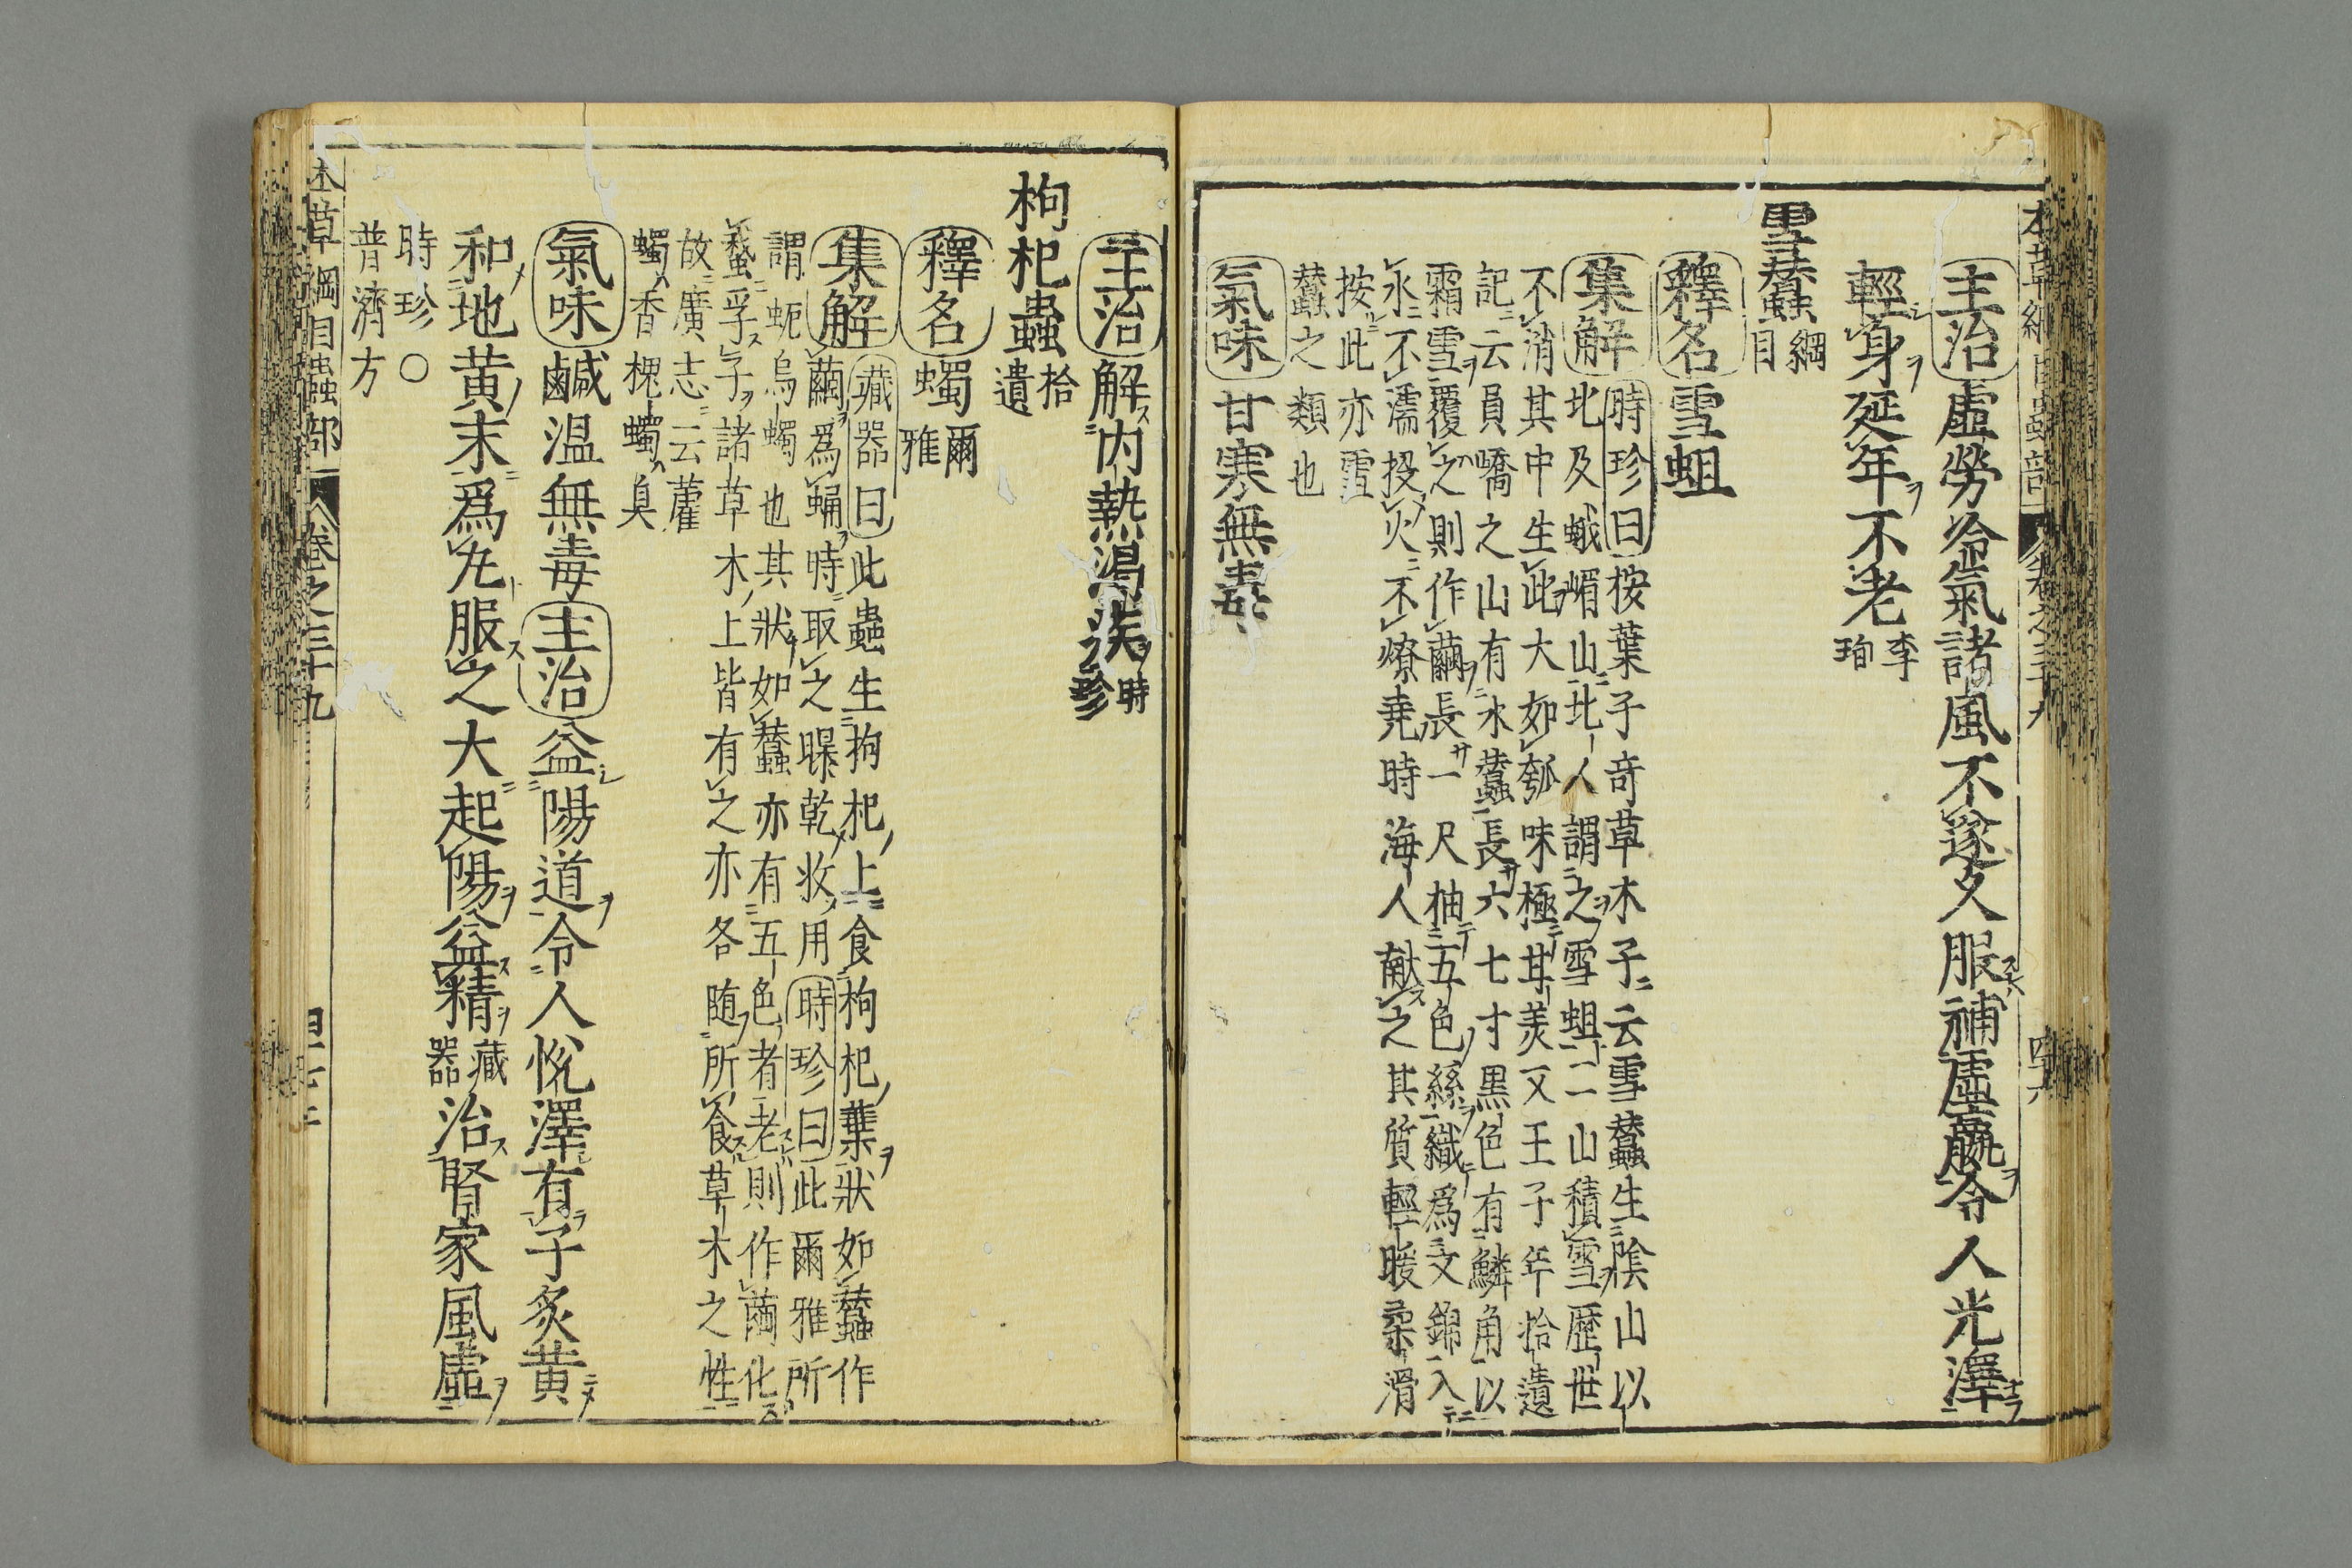 主治虛勞冷氣諸風不遂久服補虛羸令人光澤
輕身延年不老李珣
雪蠶綱目
釋名雪蛆
集解時珍曰按葉子奇草木子云雪蠶生陰山以
北及峨嵋山北人謂之雪蛆二山積雪歷世
不消其中生此大如瓠味極甘美又王子年拾遺
記云員嶠之山有氷蠶長六七寸黑色有鱗角以
霜雪覆之則作繭長一尺抽五色絲織爲文錦入
水不濡投火不燎堯時海人獻之其質輕暖柔滑
按此亦雪
蠶之類也
氣味甘寒無毒
主治解内熱渴疾時珍
枸杞蟲拾遺
釋名蠋爾雅
集解藏器曰此蟲生枸杞上食枸杞葉狀如蠶作
繭爲蛹時取之曝乾收用時珍曰此爾雅所
謂蚅烏蠋也其狀如蠶亦有五色者老則作繭化
蛾孚子諸草木上皆有之亦各随所食草木之性
故廣志云藿
蠋香槐蠋臭
氣味鹹温無毒主治益陽道令人悅澤有子炙黄
和地黄末爲丸服之大起陽益精藏器治腎家風虛
時珍〇
普濟方
本草綱目蟲部 卷之三十九